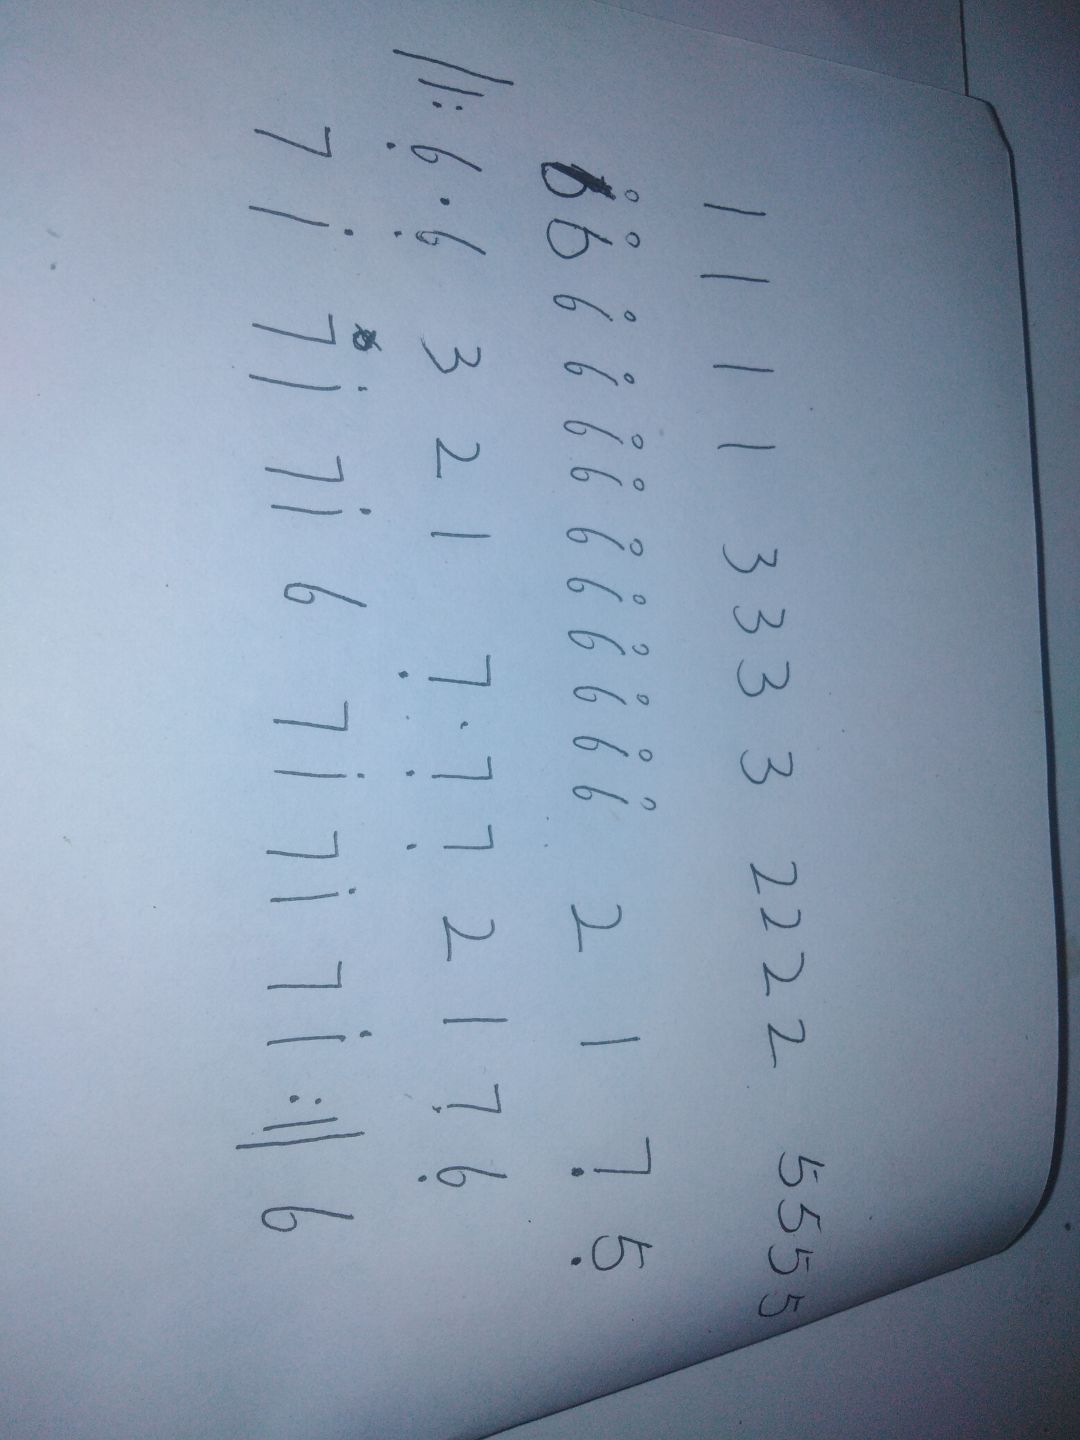 1 1 1 1 3 3 3 3 2 2 2 2 5 5 5 5
6̊ 6̊ 6̊ 6̊ 6̊ 6̊ 6̊ 6̊ 6̊ 6̊ 6̊ 6̊ 2 1 7̣ 5̣
||: 6̣ · 6̣ 3 2 1 7̣ · 7̣ 7̣ 2 1 7̣ 6̣
7 i 7 i 7 i 6 7 i 7 i 7 i :|| 6